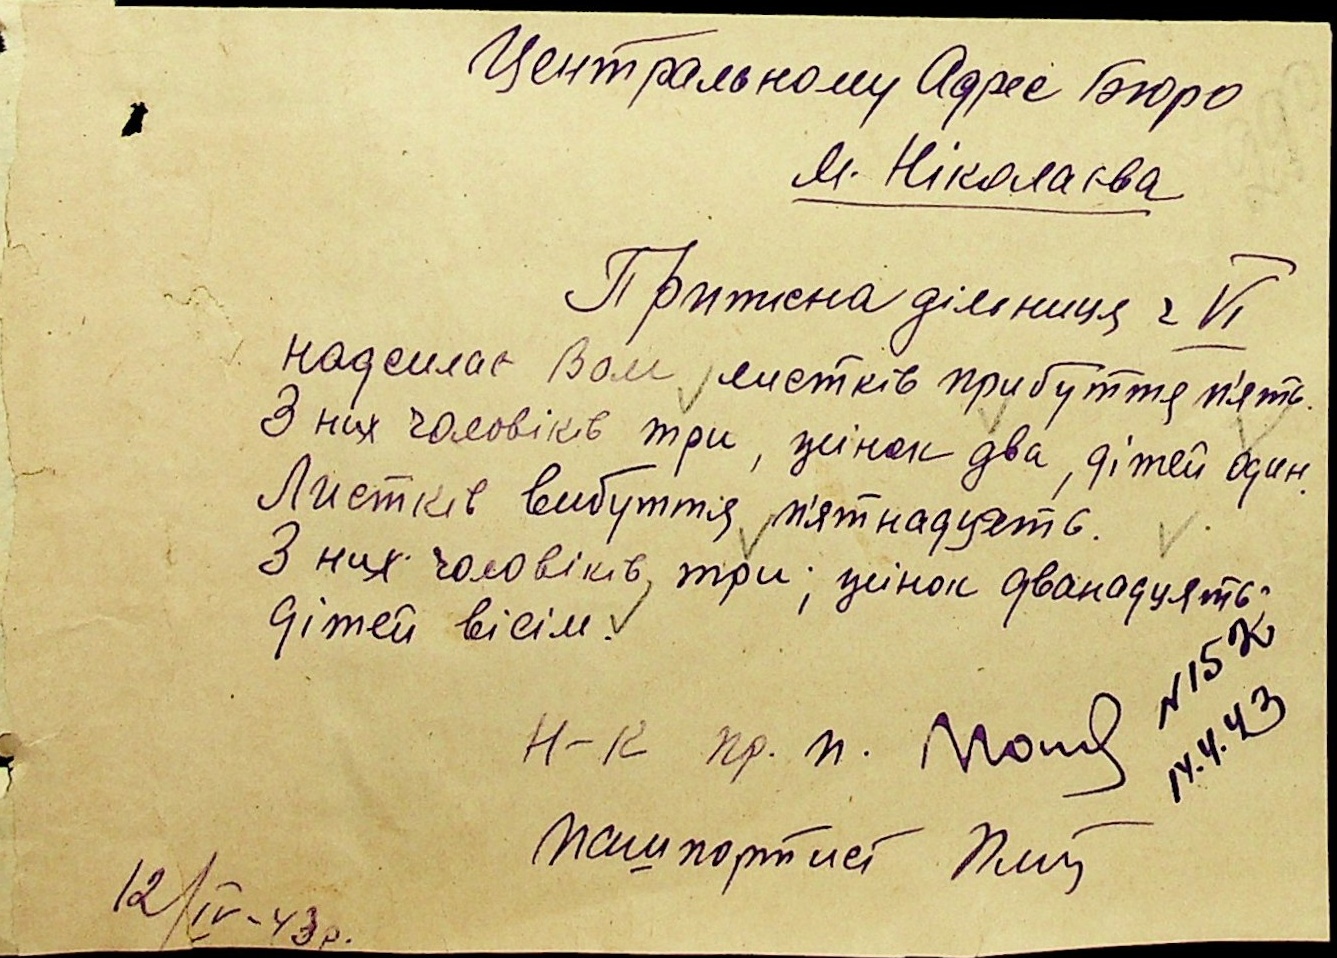 Центральному Адрес Бюро
м. Ніколаєва
Прижена дільниця ч VI
надсилає Вам листків прибуття п'ять.
З них чоловіків три, жінок два, дітей один.
Листків вибуття п'ятнадцять.
З них чоловіків три; жінок дванадцять;
дітей вісім.
Н-к пр. п.
N 15
14.4.43
Пашпортист
12/IV-43 р.